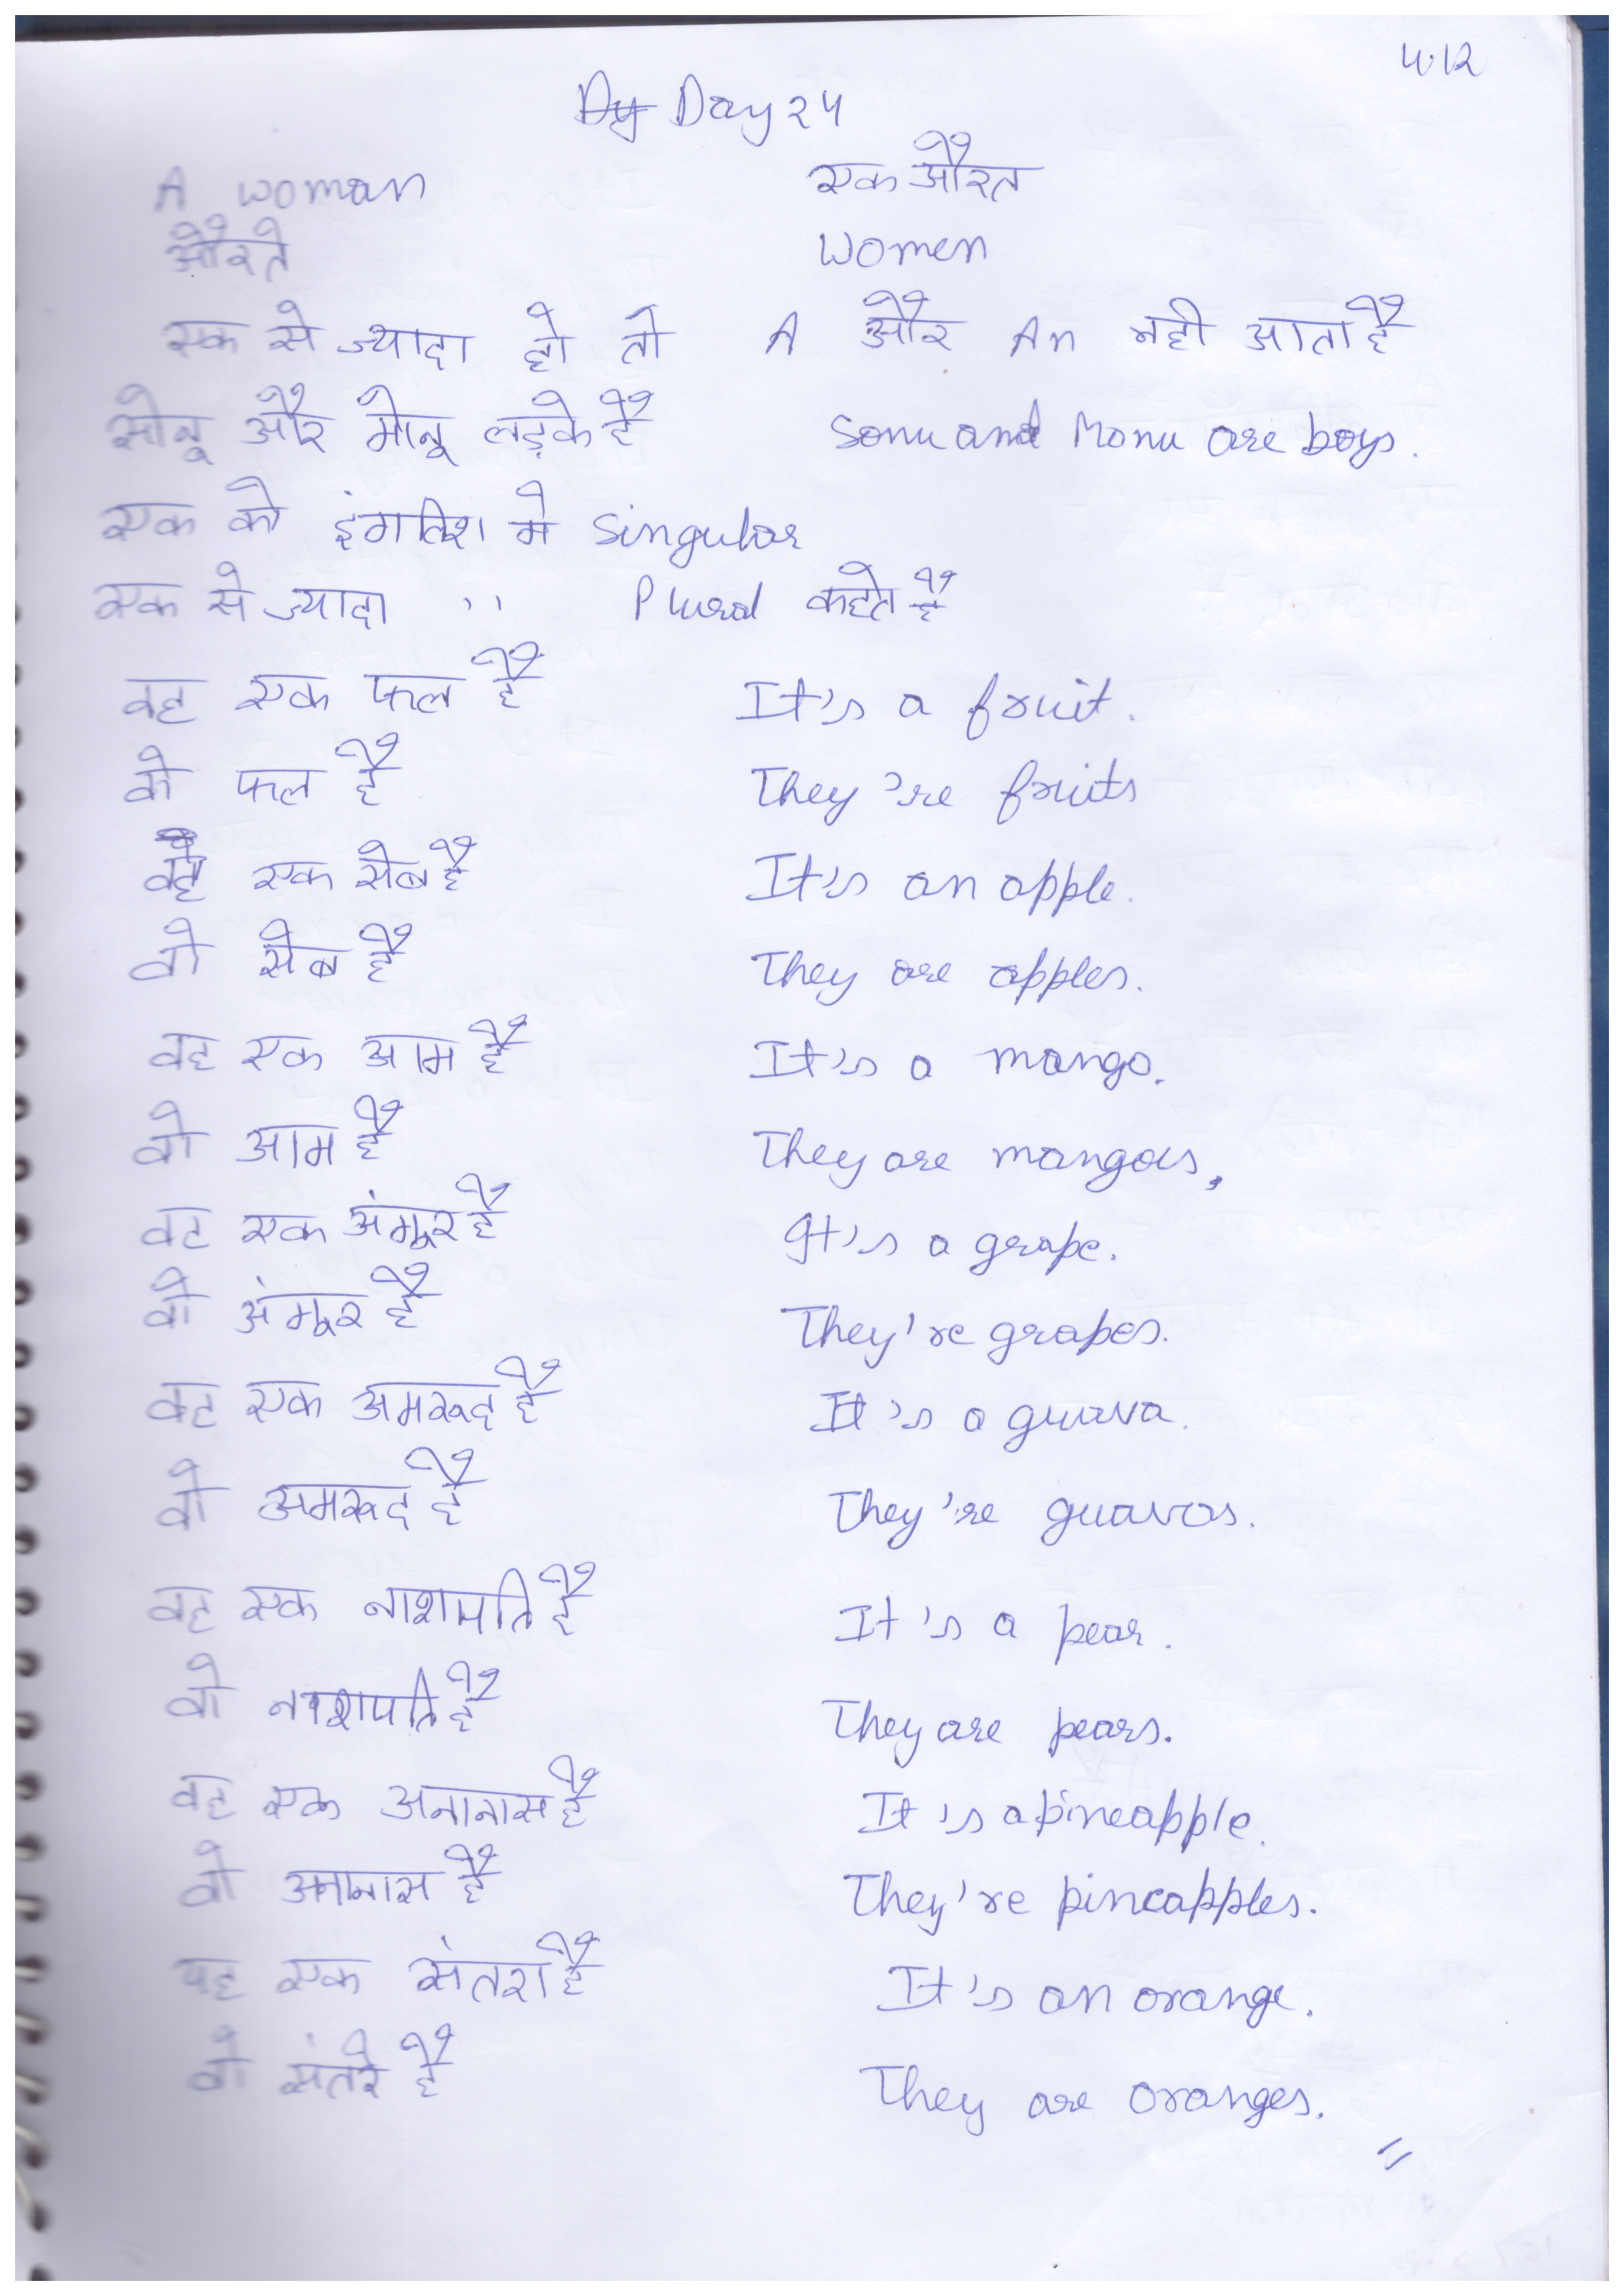 4.12
Day 24
A woman एक औरत
औरते Women
एक से ज्यादा हो तो A और An नही आता है
सोनू और मोनू लड़के है Sonu and Monu are boys.
एक को इंगलिश मे Singular
एक से ज्यादा '' Plural कहते है
वह एक फल है It's a fruit.
वो फल है They're fruits
वह एक सेब है It's an apple.
वो सेब है They are apples.
वह एक आम है It's a mango.
वो आम है They are mangoes.
वह एक अंगूर है It's a grape.
वो अंगूर है They're grapes.
वह एक अमरूद है It's a guava.
वो अमरूद है They're guavas.
वह एक नाशपति है It's a pear.
वो नाशपति है They are pears.
वह एक अनानास है It's a pineapple.
वो अनानास है They're pineapples.
यह एक संतरा है It's an orange.
वो संतरे है They are oranges.